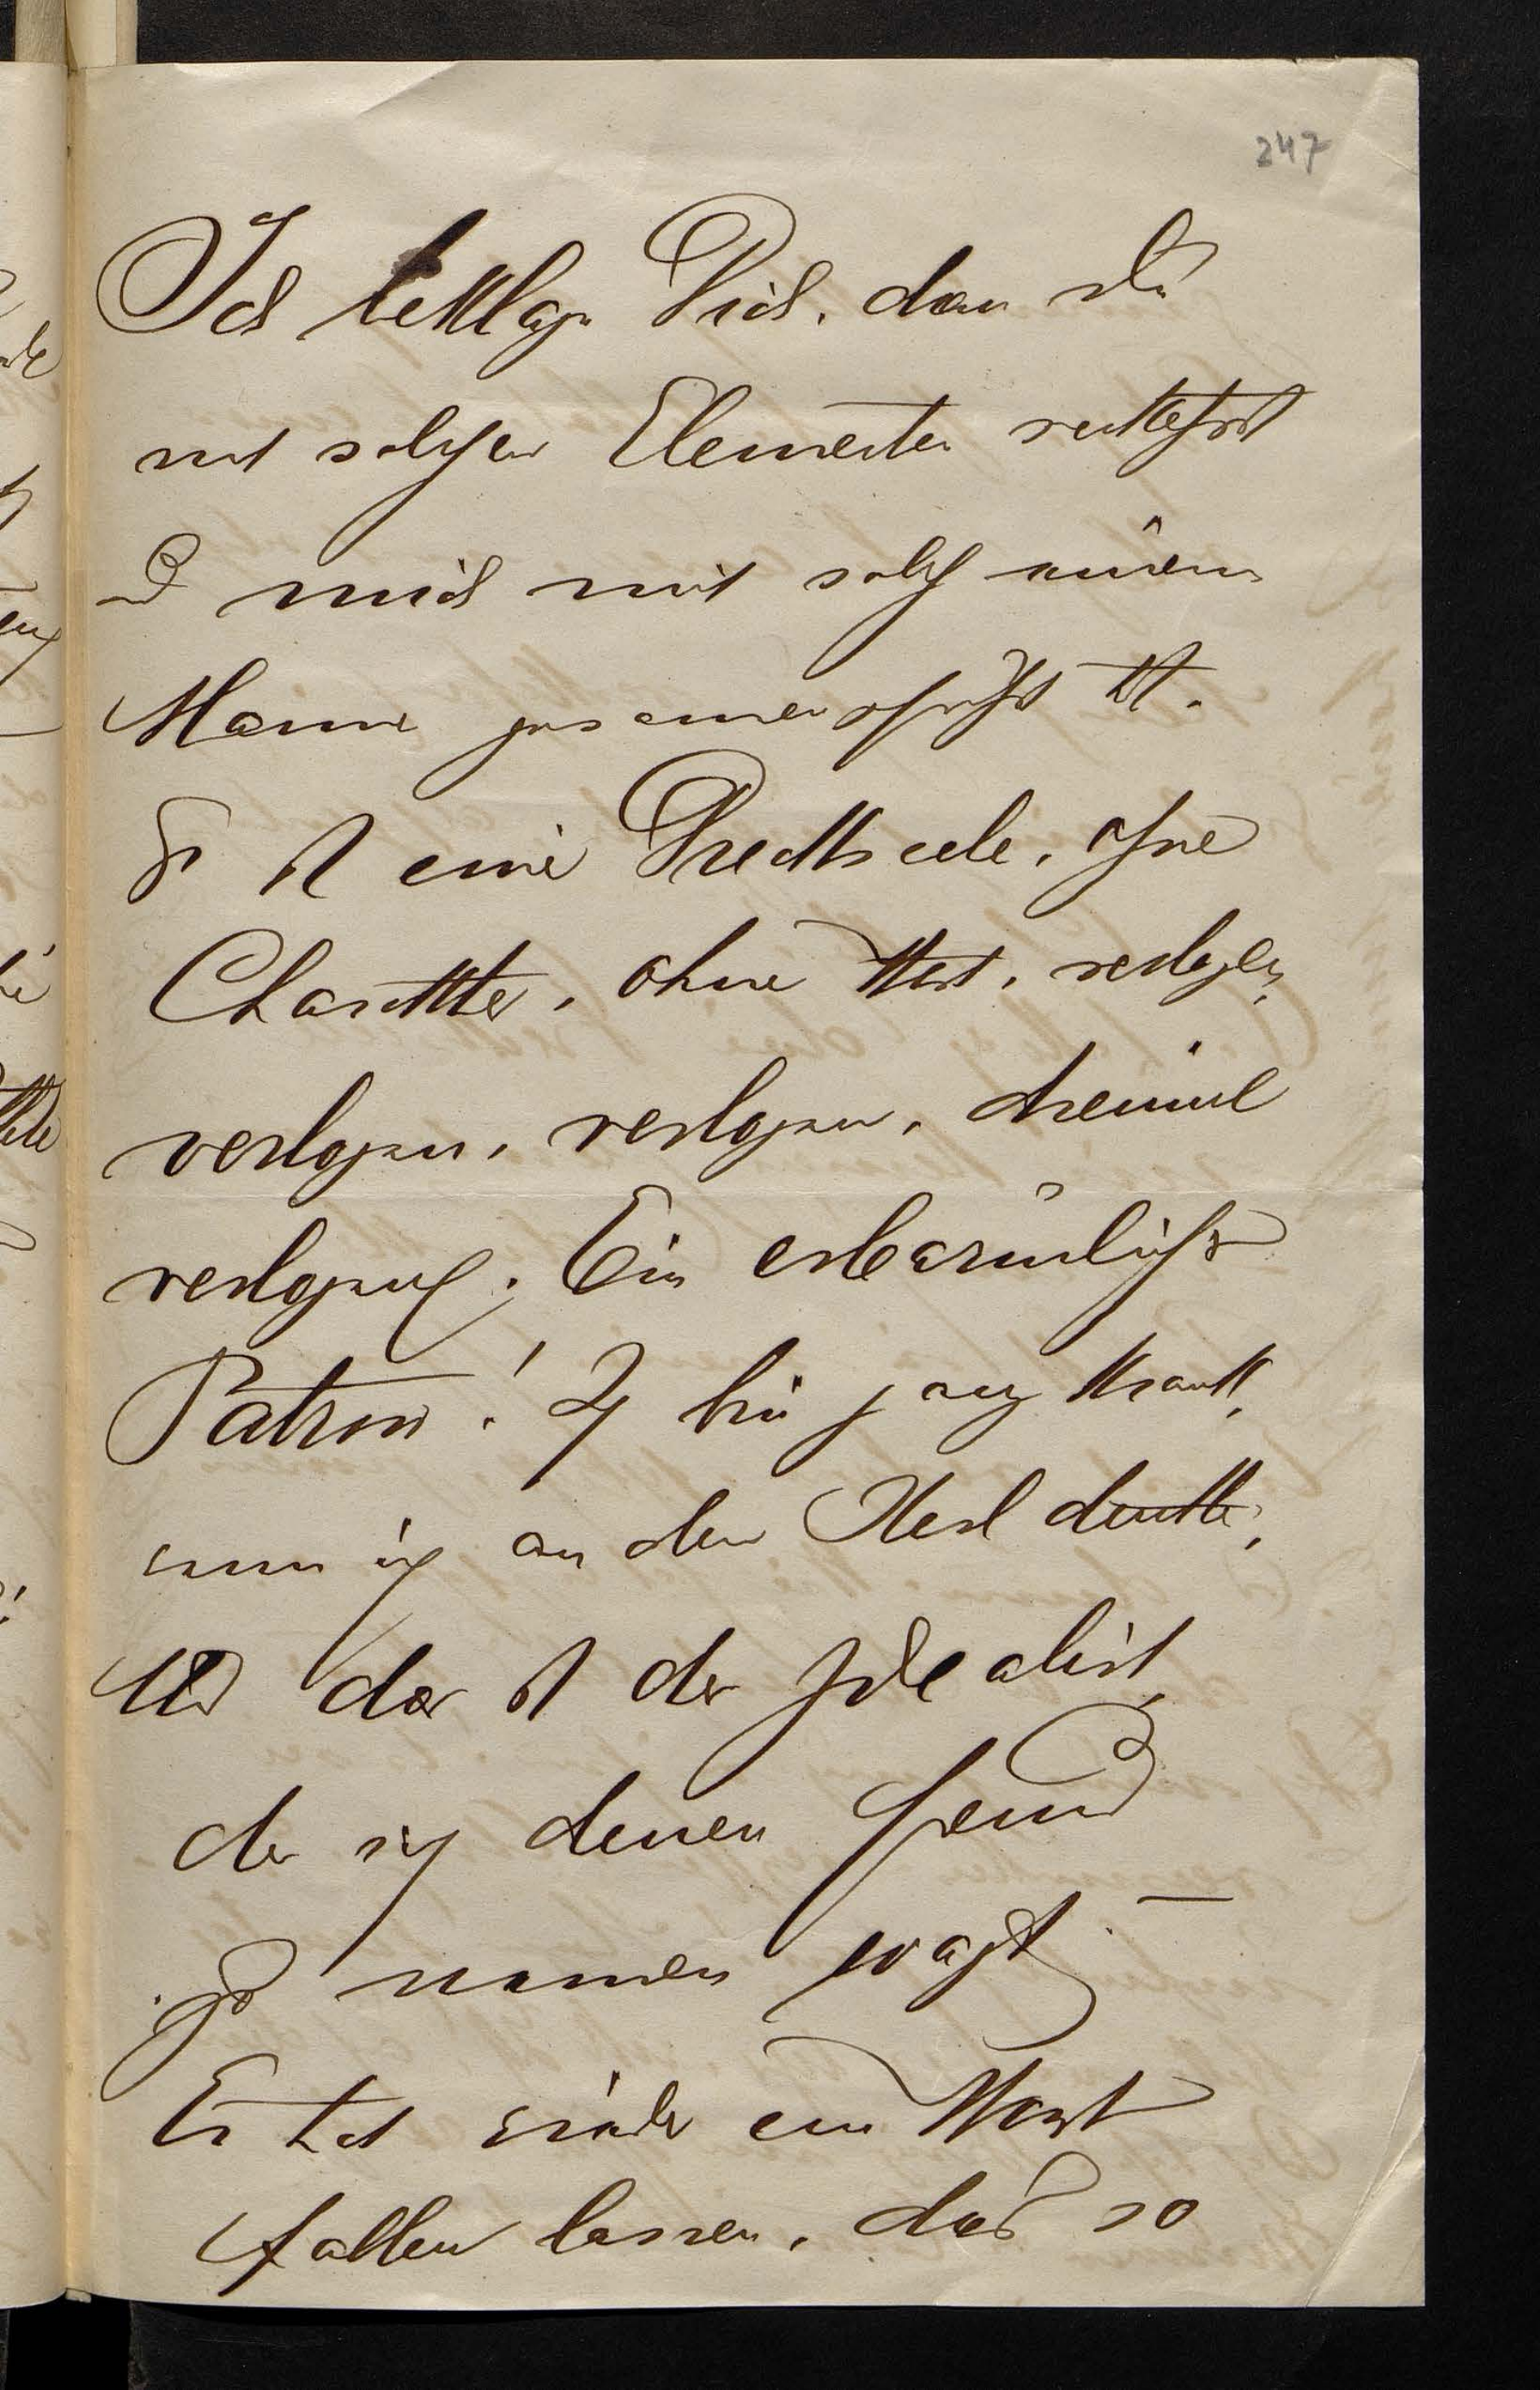 247
Ich beklage Dich, dass Du
mit solchen Elementen verkehrst
und mich mit solch einem
Manne zusammengeführt hast.
Er ist eine Drecksseele, ohne
Charakter, ohne Wert, verlogen,
verlogen, verlogen, dreimal
verlogen. Ein erbärmlicher
Patron! Ich bin ganz krank,
wenn ich an den Kerl denke,
Und das ist der Idealist,
der sich deinen Freund
zu nennen wagt. –
Er hat wieder ein Wort
fallen lassen, das so